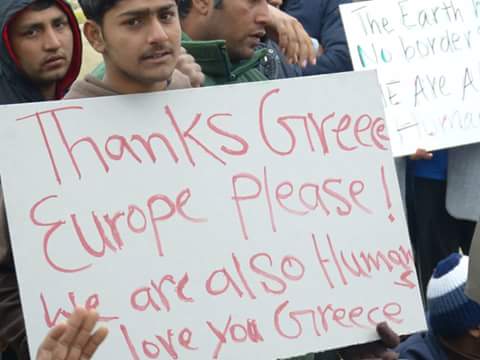 Thanks Greece
Europe please!
We are also Human
love you Greece
The Earth
No border
WE Are A
Huma